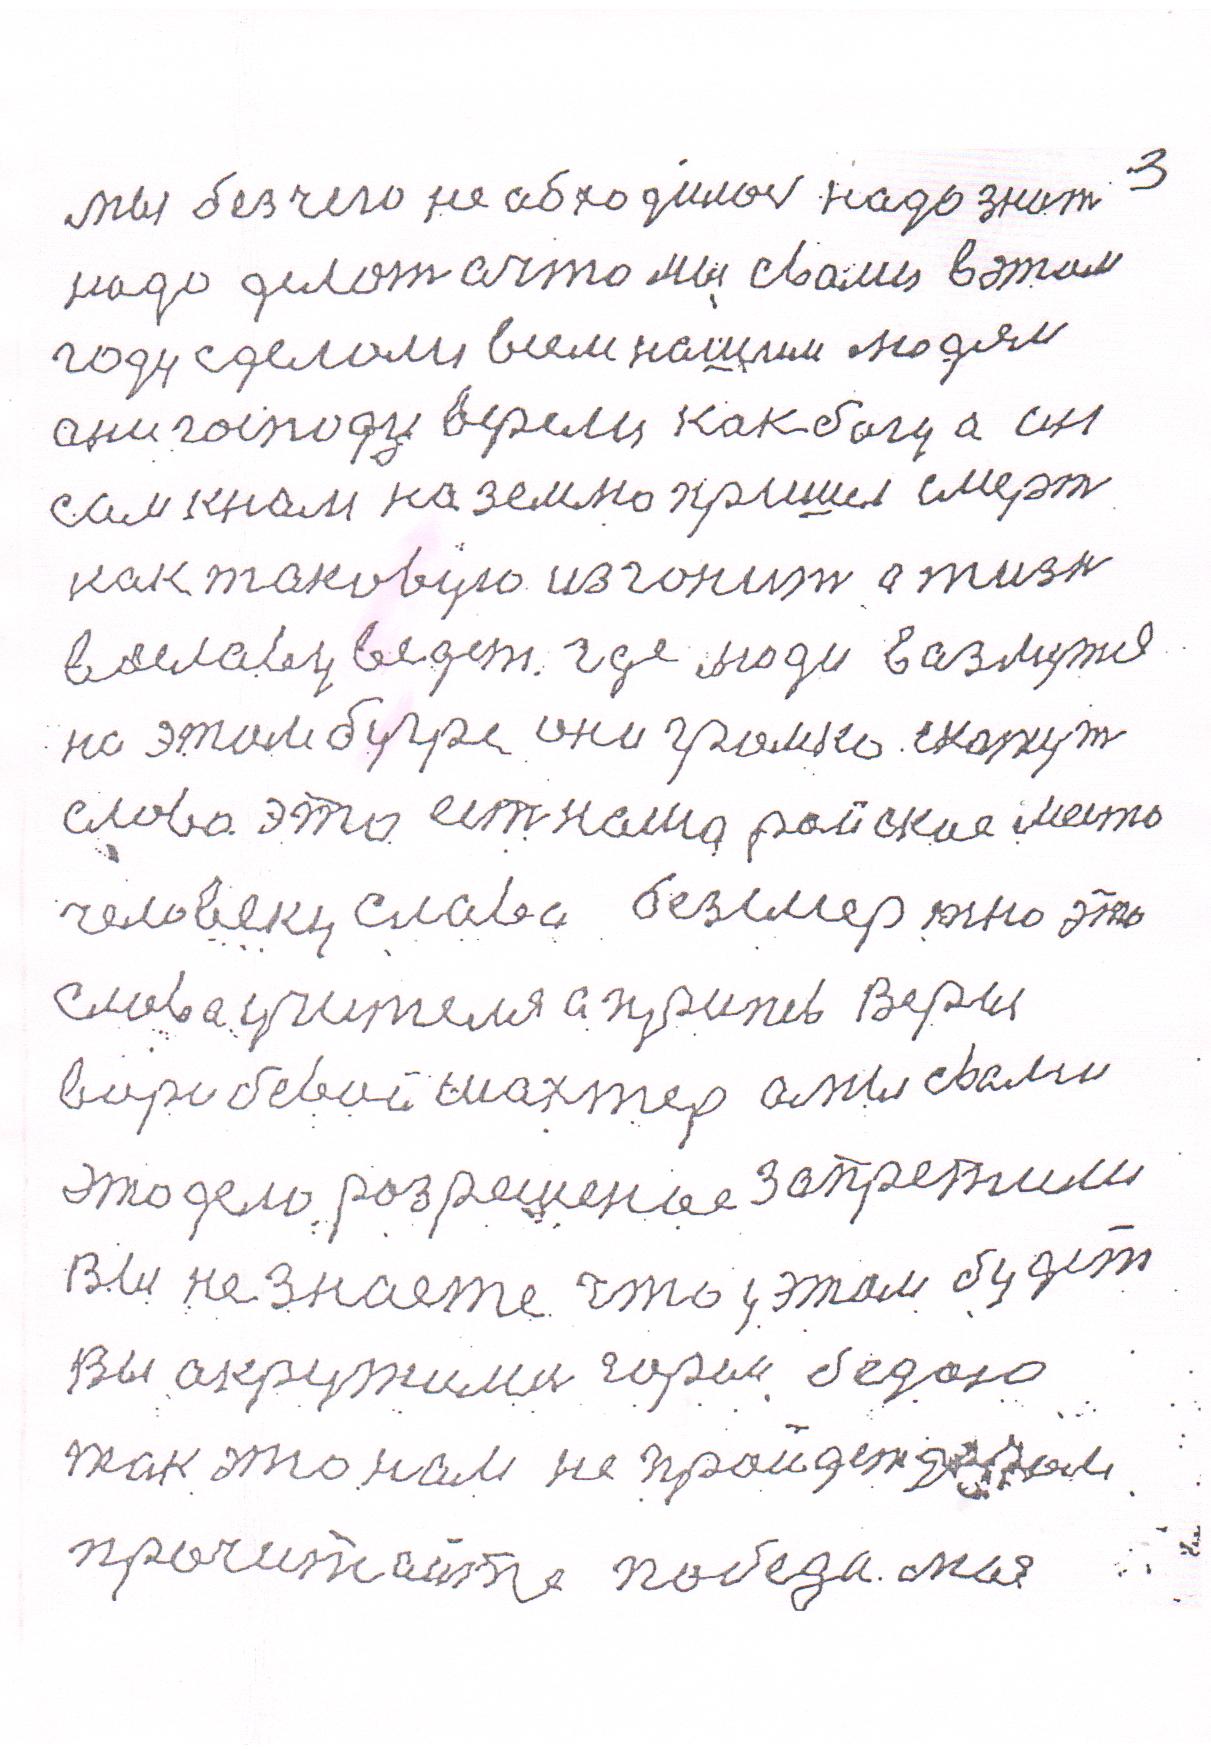 3
мы безчего не абходимои надо знат
надо делот ачто мы свами вэтом
году сделоли всем нашим людям
ани господу верели как богу а он
сам кнам на землю пришел смерт
как таковую изгонит а жизн
вославу ведет. где люди вазмутся
на этом бугре они громко скажут
слово это ест наша райское место
человеку слава безсмержно это
слова учителя а припев Веры
варибевой шахтер амы свами
это дело розрешение запретили
Вы не знаете что у этом будет
Вы акружили горем бедою
так это нам не пройдет даром
прочитайте победа моя